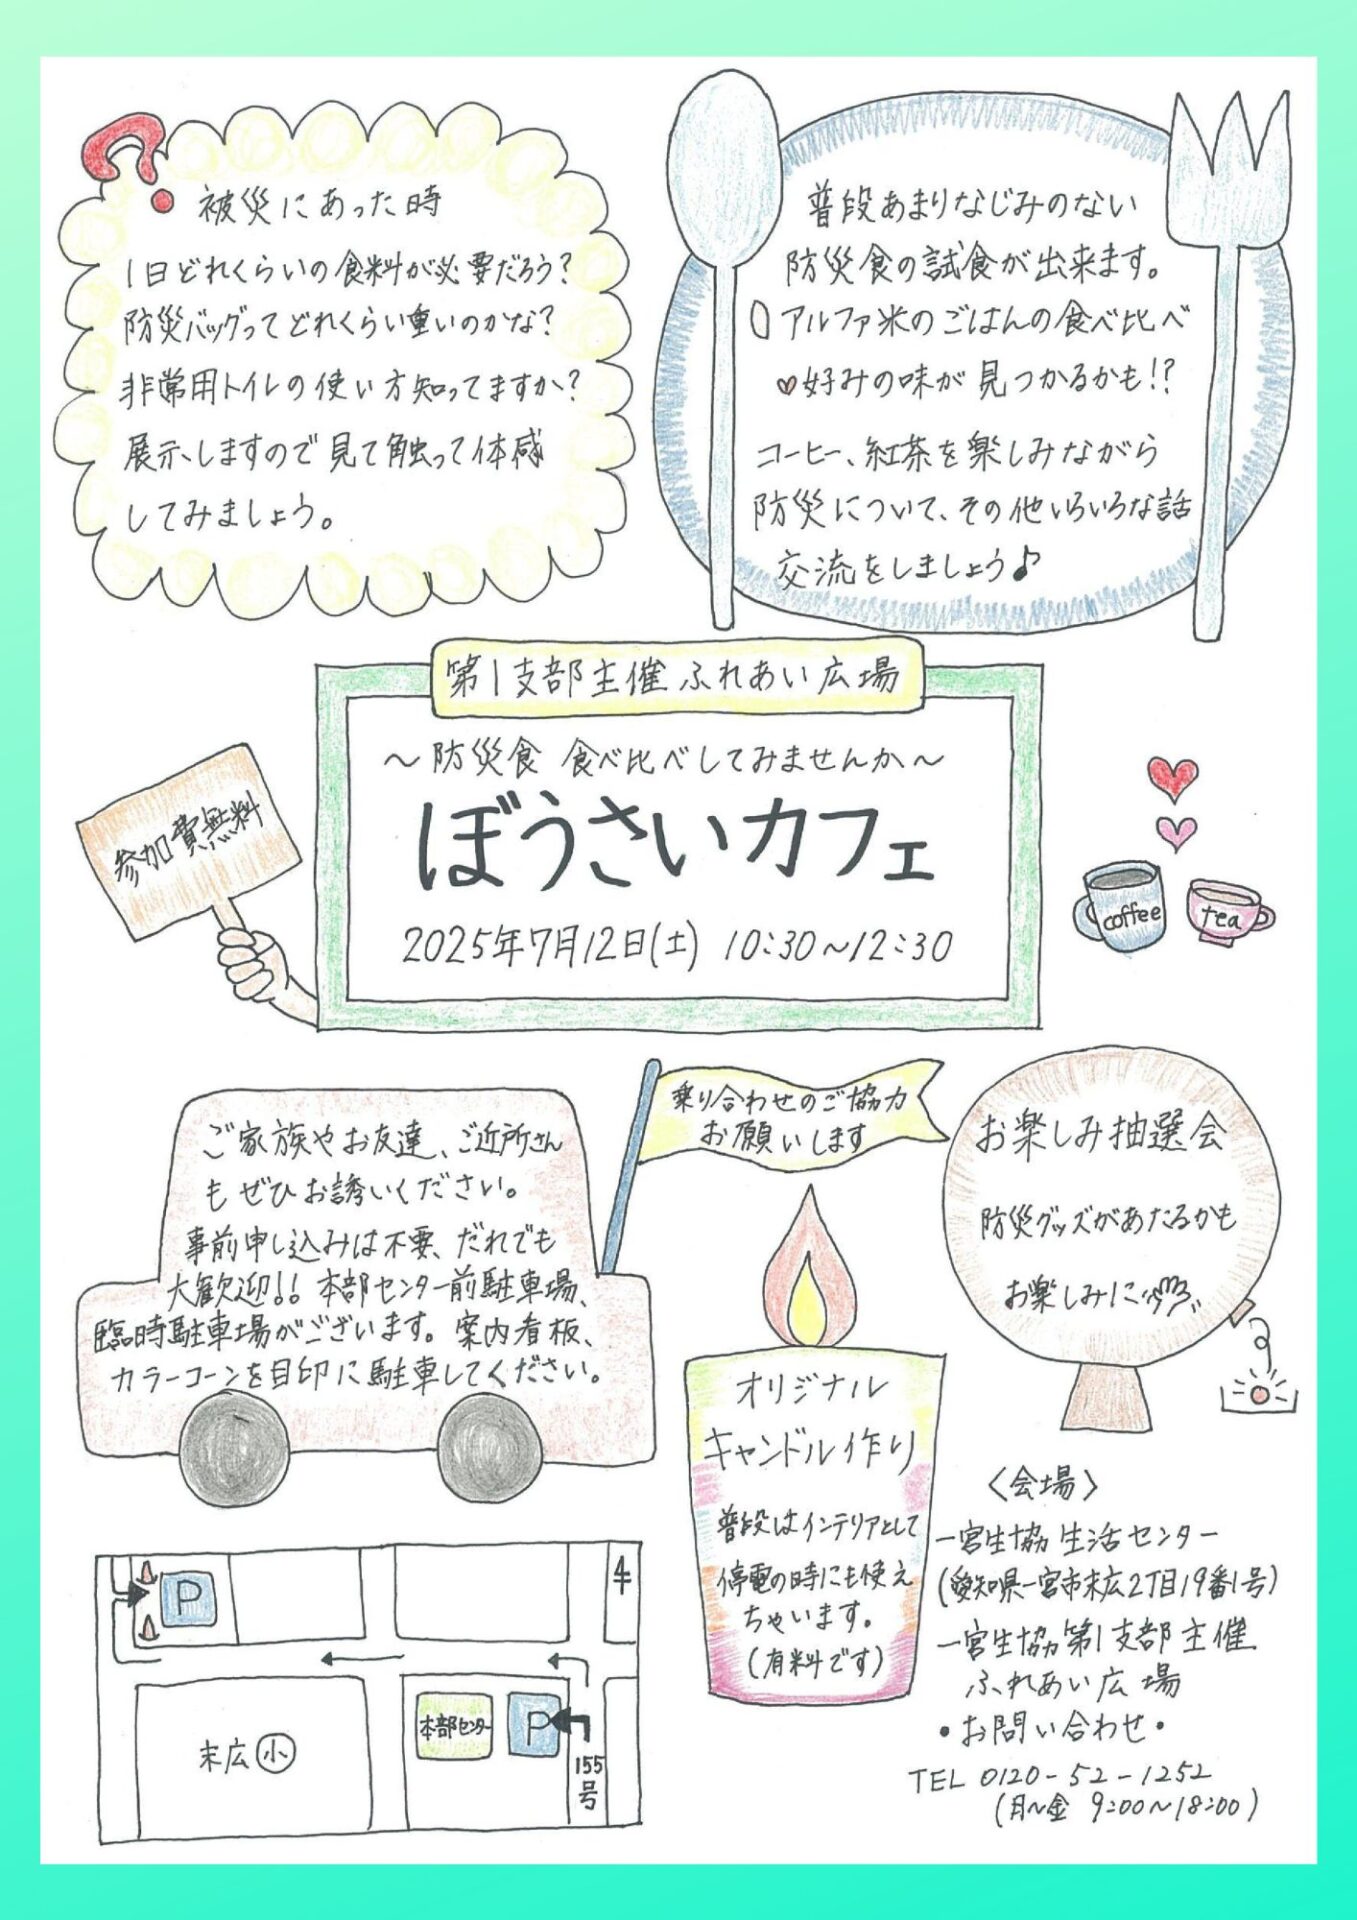 被災にあった時
1日どれくらいの食料が必要だろう?
防災バッグってどれくらい重いのかな?
非常用トイレの使い方知ってますか?
展示しますので見て触って体感
してみましょう。
普段あまりなじみのない
防災食の試食が出来ます。
アルファ米のごはんの食べ比べ
♥好みの味が見つかるかも!?
コーヒー、紅茶を楽しみながら
防災について、その他いろいろな話
交流をしましょう♪
第1支部主催ふれあい広場
～防災食 食べ比べしてみませんか～
ぼうさいカフェ
2025年7月12日(土) 10:30～12:30
参加費無料
coffee
tea
乗り合わせのご協力
お願いします
ご家族やお友達、ご近所さん
もぜひお誘いください。
事前申し込みは不要、だれでも
大歓迎!! 本部センター前駐車場、
臨時駐車場がございます。案内看板、
カラーコーンを目印に駐車してください。
お楽しみ抽選会
防災グッズがあたるかも
お楽しみに
オリジナル
キャンドル作り
普段はインテリアとして
停電の時にも使え
ちゃいます。
(有料です)
〈会場〉
一宮生協 生活センター
(愛知県一宮市末広2丁目19番1号)
一宮生協第1支部主催
ふれあい広場
・お問い合わせ・
TEL 0120-52-1252
(月～金 9:00～18:00)
P
末広小
本部センター
P
155号